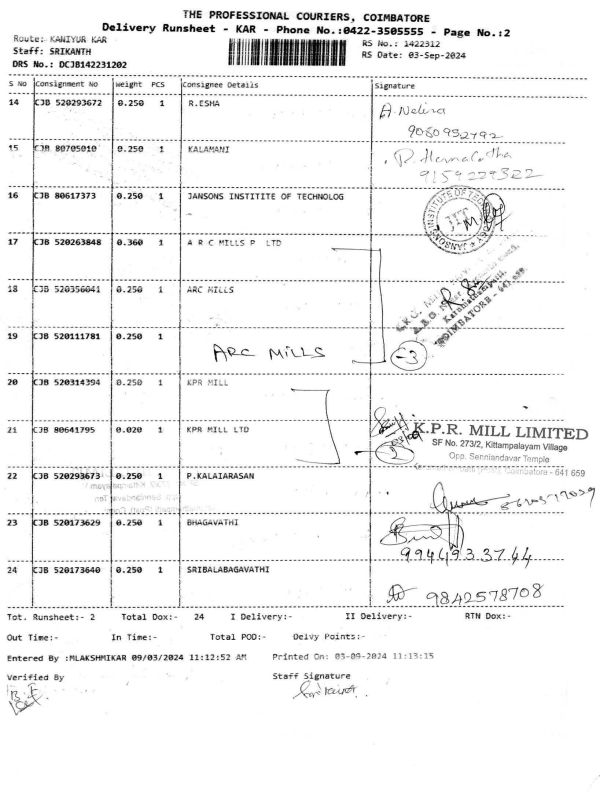 THE PROFESSIONAL COURIERS, COIMBATORE
Delivery Runsheet - KAR - Phone No.:0422-3505555 - Page No.:2
Route: KANIYUR KAR
RS No.: 1422312
Staff: SRIKANTH
RS Date: 03-Sep-2024
DRS No.: DCJB142231202
S No Consignment No Weight PCS Consignee Details Signature
14 CJB 520293672 0.250 1 R.ESHA
9080952792
15 CJB 80705010 1 KALAMANI
P. Hemalatha
9159229322
16 CJB 80617373 0.250 1 JANSONS INSTITITE OF TECHNOLOG
17 CJB 520263848 0.360 1 A R C MILLS P LTD
18 CJB 520356041 0.250 1 ARC MILLS
COIMBATORE - 641 659
19 CJB 520111781 0.250 1
ARC MILLS
-3
20 CJB 520314394 0.250 1 KPR MILL
21 CJB 80641795 0.020 1 KPR MILL LTD
K.P.R. MILL LIMITED
SF No. 273/2, Kittampalayam Village
Opp. Senniandavar Temple
Coimbatore - 641 659
2
22 CJB 520293673 0.250 1 P.KALAIARASAN
23 CJB 520173629 0.250 1 BHAGAVATHI
9944933744
24 CJB 520173640 0.250 1 SRIBALABAGAVATHI
9842578708
Tot. Runsheet:- 2 Total Dox:- 24 I Delivery:- II Delivery:- RTN Dox:-
Out Time:- In Time:- Total POD:- Delvy Points:-
Entered By :MLAKSHMIKAR 09/03/2024 11:12:52 AM Printed On: 03-09-2024 11:13:15
Verified By Staff Signature